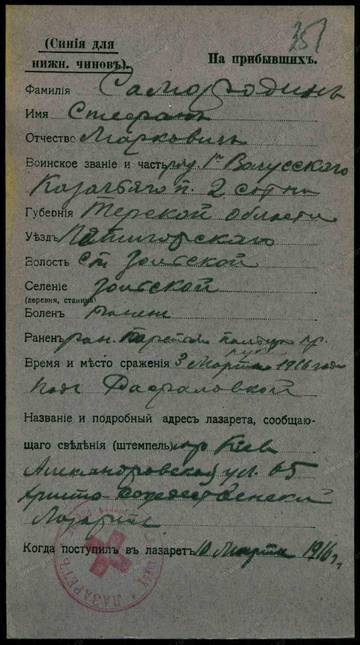 351
(Синія для
нижн. чиновъ).
На прибывшихъ.
Фамилія Самородинъ
Имя Стефанъ
Отчество Марковичъ
Воинское званіе и часть ряд. 1го Волгскаго
Казачьяго п. 2 сотни
Губернія Терской области
Уѣздъ Пятигорскаго
Волость ст. Золтской
Селеніе Золтской
(деревня, станица)
Боленъ ранен
Раненъ ран.
Время и мѣсто сраженія 3 Марта 1916 года
подъ
Названіе и подробный адресъ лазарета, сообщаю-
щаго свѣдѣнія (штемпель) гор Кіев
Александровская ул. 65
Христо рождественскій
Лазаретъ
Когда поступилъ въ лазаретъ 10 Марта 1916 г.
ЛАЗАРЕТЪ